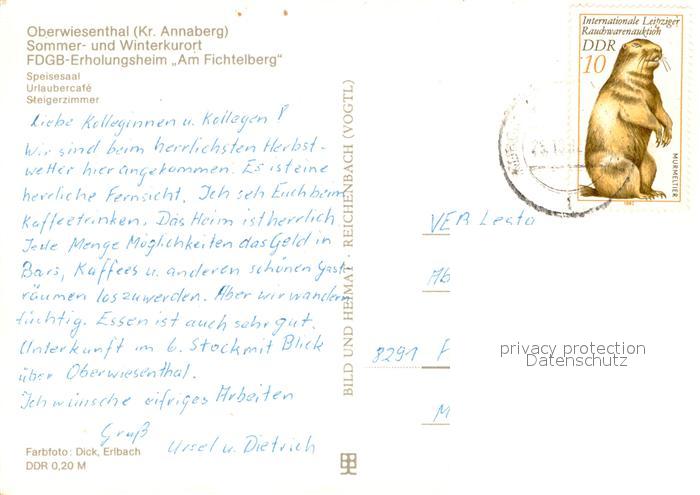 Oberwiesenthal (Kr. Annaberg)
Sommer- und Winterkurort
FDGB-Erholungsheim „Am Fichtelberg"
Speisesaal
Urlaubercafé
Steigerzimmer
Liebe Kolleginnen u. Kollegen!
Wir sind beim herrlichsten Herbst-
wetter hier angekommen. Es ist eine
herrliche Fernsicht. Ich seh Euch beim
Kaffeetrinken. Das Heim ist herrlich
Jede Menge Möglichkeiten das Geld in
Bars, Kaffees u. anderen schönen Gast-
räumen loszuwerden. Aber wir wandern
tüchtig. Essen ist auch sehr gut.
Unterkunft im 6. Stock mit Blick
über Oberwiesenthal.
Ich wünsche eifriges Arbeiten
Gruß
Ursel u. Dietrich
Farbfoto: Dick, Erlbach
DDR 0,20 M
BILD UND HEIMAT · REICHENBACH (VOGTL)
Internationale Leipziger
Rauchwarenauktion
DDR
10
MURMELTIER
1982
VEB
Ab
8291 P
M
privacy protection
Datenschutz